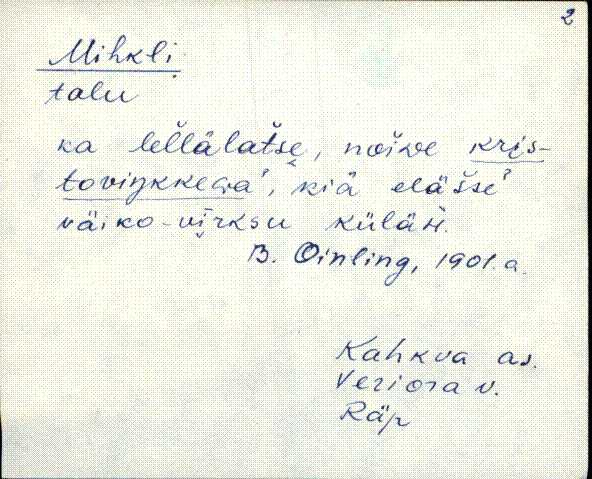 2
Mihkli
talu
ka lellälatše, noiwe kris-
toviŋkkewa', kiä eläšše'
väiko-virksu külän.
B. Oinling, 1901. a.
Kahkva as.
Veriora v.
Räp